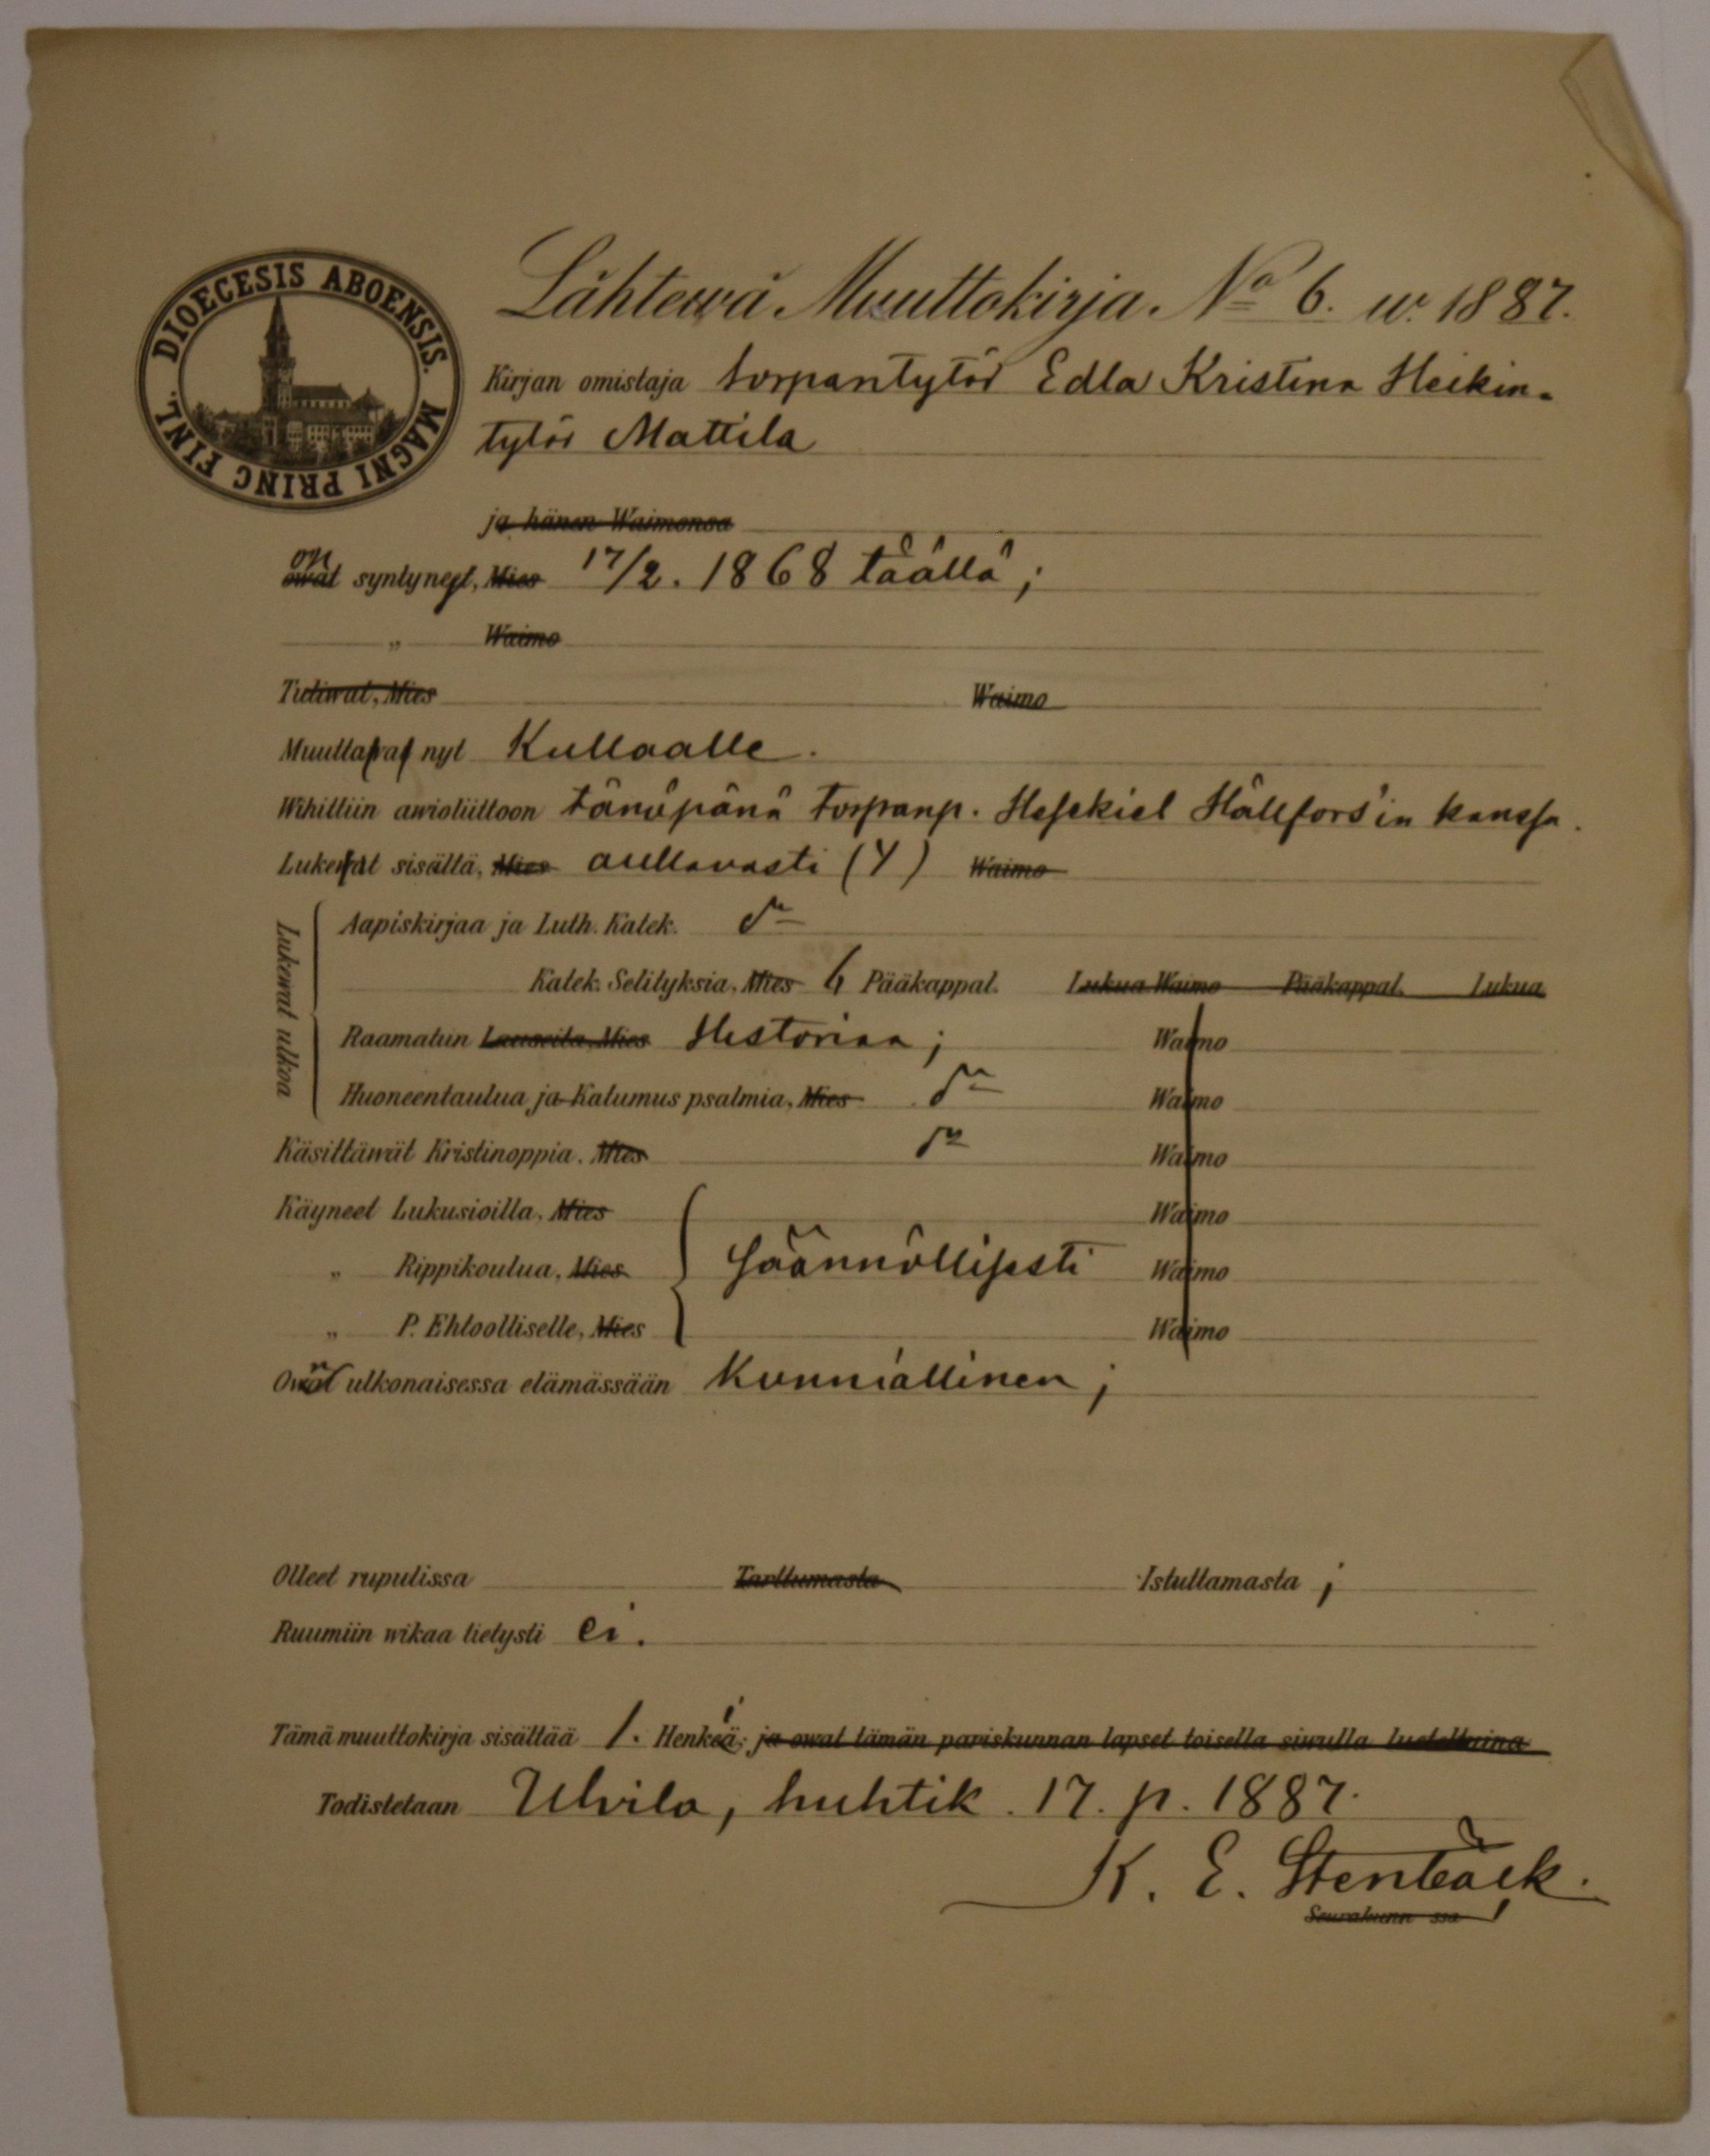 DIOECESIS ABOENSIS. MAGNI PRINC FINL.
Lähtewä Muuttokirja No 6. w. 1887.
Kirjan omistaja torpantytär Edla Kristina Heikin-
tytär Mattila
ja hänen Waimonsa
on
owat syntyneet, Mies 17/2. 1868 täällä;
„ Waimo
Tuliwat, Mies Waimo
Muuttawat nyt Kullaalle.
Wihittiin awioliittoon tänäpänä torpanp. Hesekiel Hällfors'in kanssa.
Lukewat sisältä, Mies auttavasti (4) Waimo
Lukewat ulkoa
Aapiskirjaa ja Luth. Katek.
Katek. Selityksiä, Mies 6 Pääkappal. Lukua Waimo Pääkappal. Lukua
Raamatun Lauseita, Mies Historiaa; Waimo
Huoneentaulua ja Katumus psalmia, Mies Waimo
Käsittäwät Kristinoppia. Mies Waimo
Käyneet Lukusioilla, Mies Waimo
„ Rippikoulua, Mies säännöllisesti Waimo
„ P. Ehtoolliselle, Mies Waimo
Owat ulkonaisessa elämässään Kunniallinen;
Olleet rupulissa Tarttumasta Istuttamasta ;
Ruumiin wikaa tietysti ei.
Tämä muuttokirja sisältää 1. Henkeä; ja owat tämän pariskunnan lapset toisella siwulla lueteltuina
Todistetaan Ulvila, huhtik. 17. p. 1887.
K. E. Stenbäck.
Seurakunn ssa